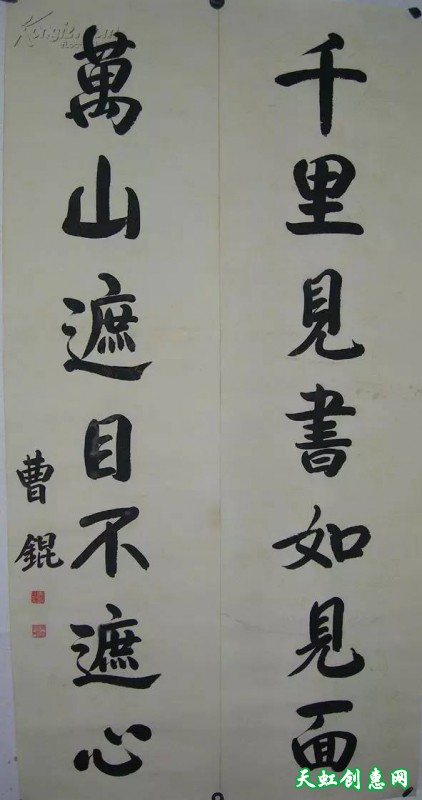 千里見書如見面
萬山遮目不遮心
曹錕
Kongfz.com
天虹创惠网